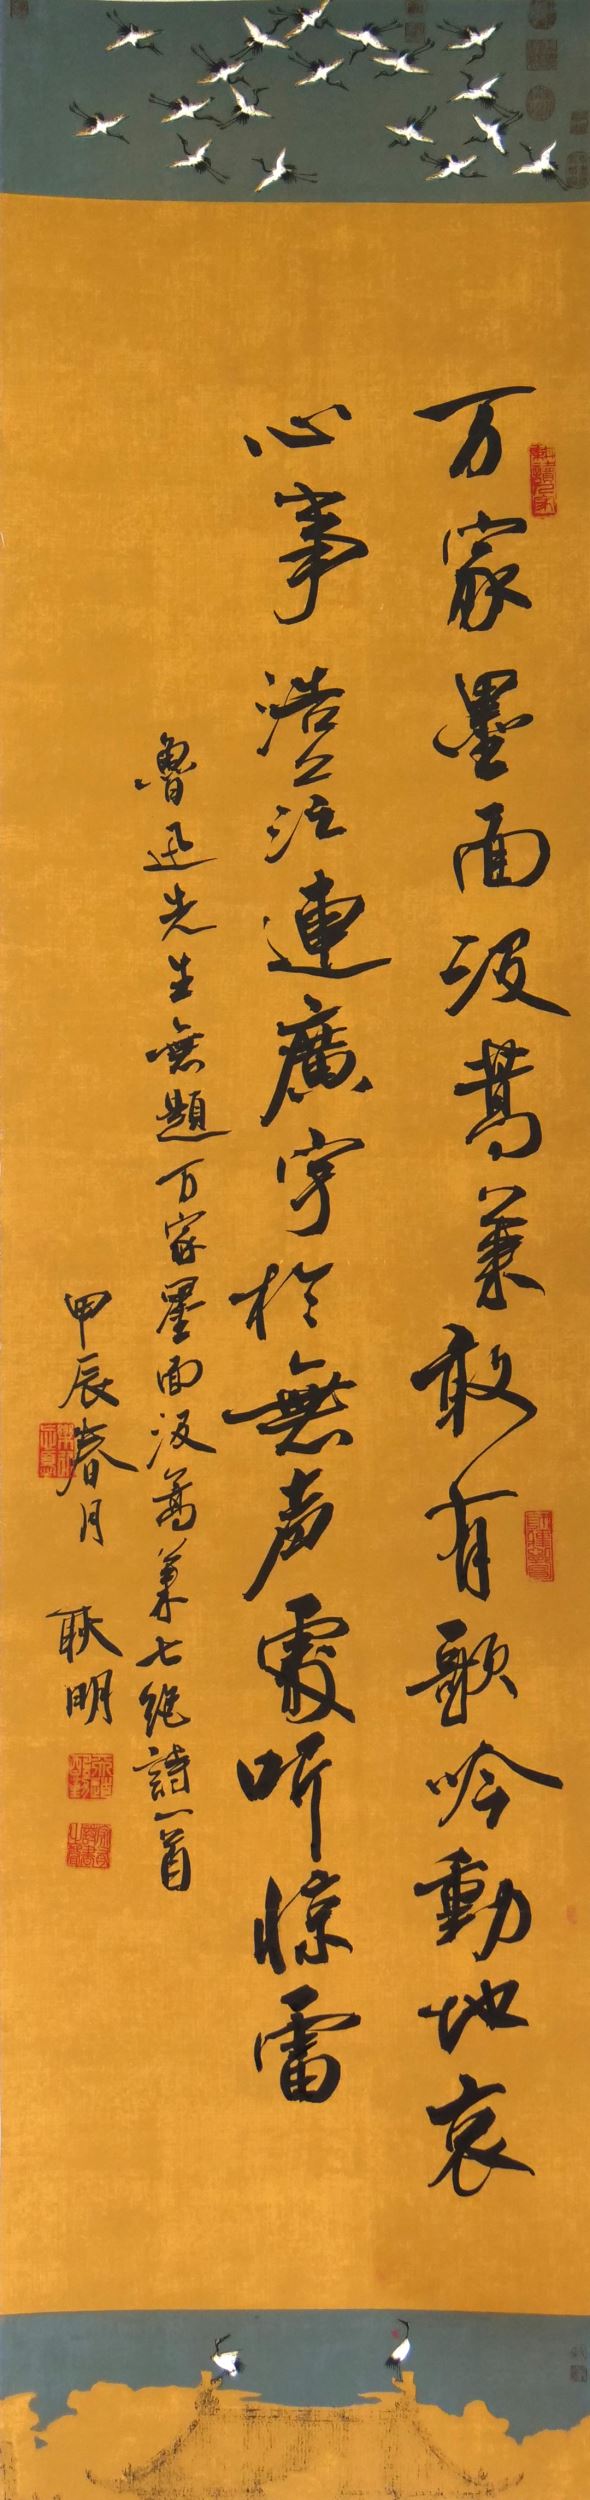 万家墨面没蒿莱敢有歌吟動地哀
心事浩茫連廣宇於無声處听惊雷
魯迅先生無題万家墨面没蒿莱七绝詩一首
甲辰春月 耿明